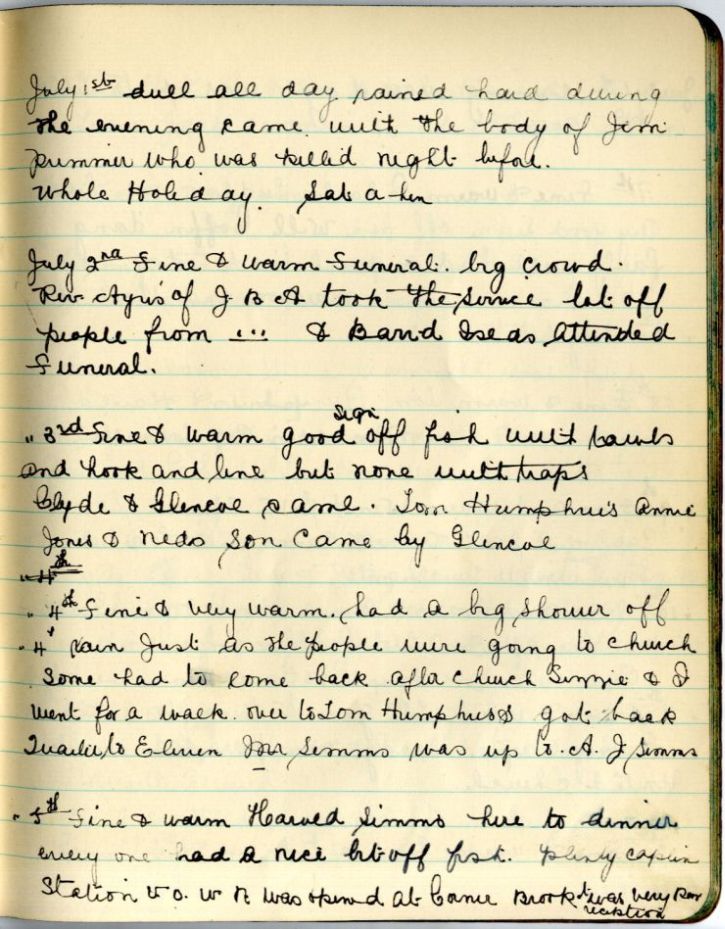 July 1st duell all day rained hard during
the evening came with the body of Jim
Pummer who was killed night before.
Whole Holeday. Sat a hm
July 2nd Fine & warm Funeral. big crowd.
Rev Ayris of J B A took the service lot off
people from ... & Band Iseas attended
Funeral.
" 3rd Fine & warm good Sign off fish with bawls
and hook and line but none with traps
Clyde & Glencoe came. Tom Humphries Annie
Jones & Neds Son came by Glencoe
" 4th
" 4th Fine & very warm. had a big shower off
" 4 rain Just as the people were going to church
Some had to come back after church Suzzie & I
went for a walk over to Tom Humphriss got back
Quarter to Eleven Mr Simms was up to A. J Simms
" 5th Fine & warm Harved Simms here to dinner
every one had a nice bit off fish. plenty caplin
Station V. O. W R was opened at Corner Brook & was very Poor
reception